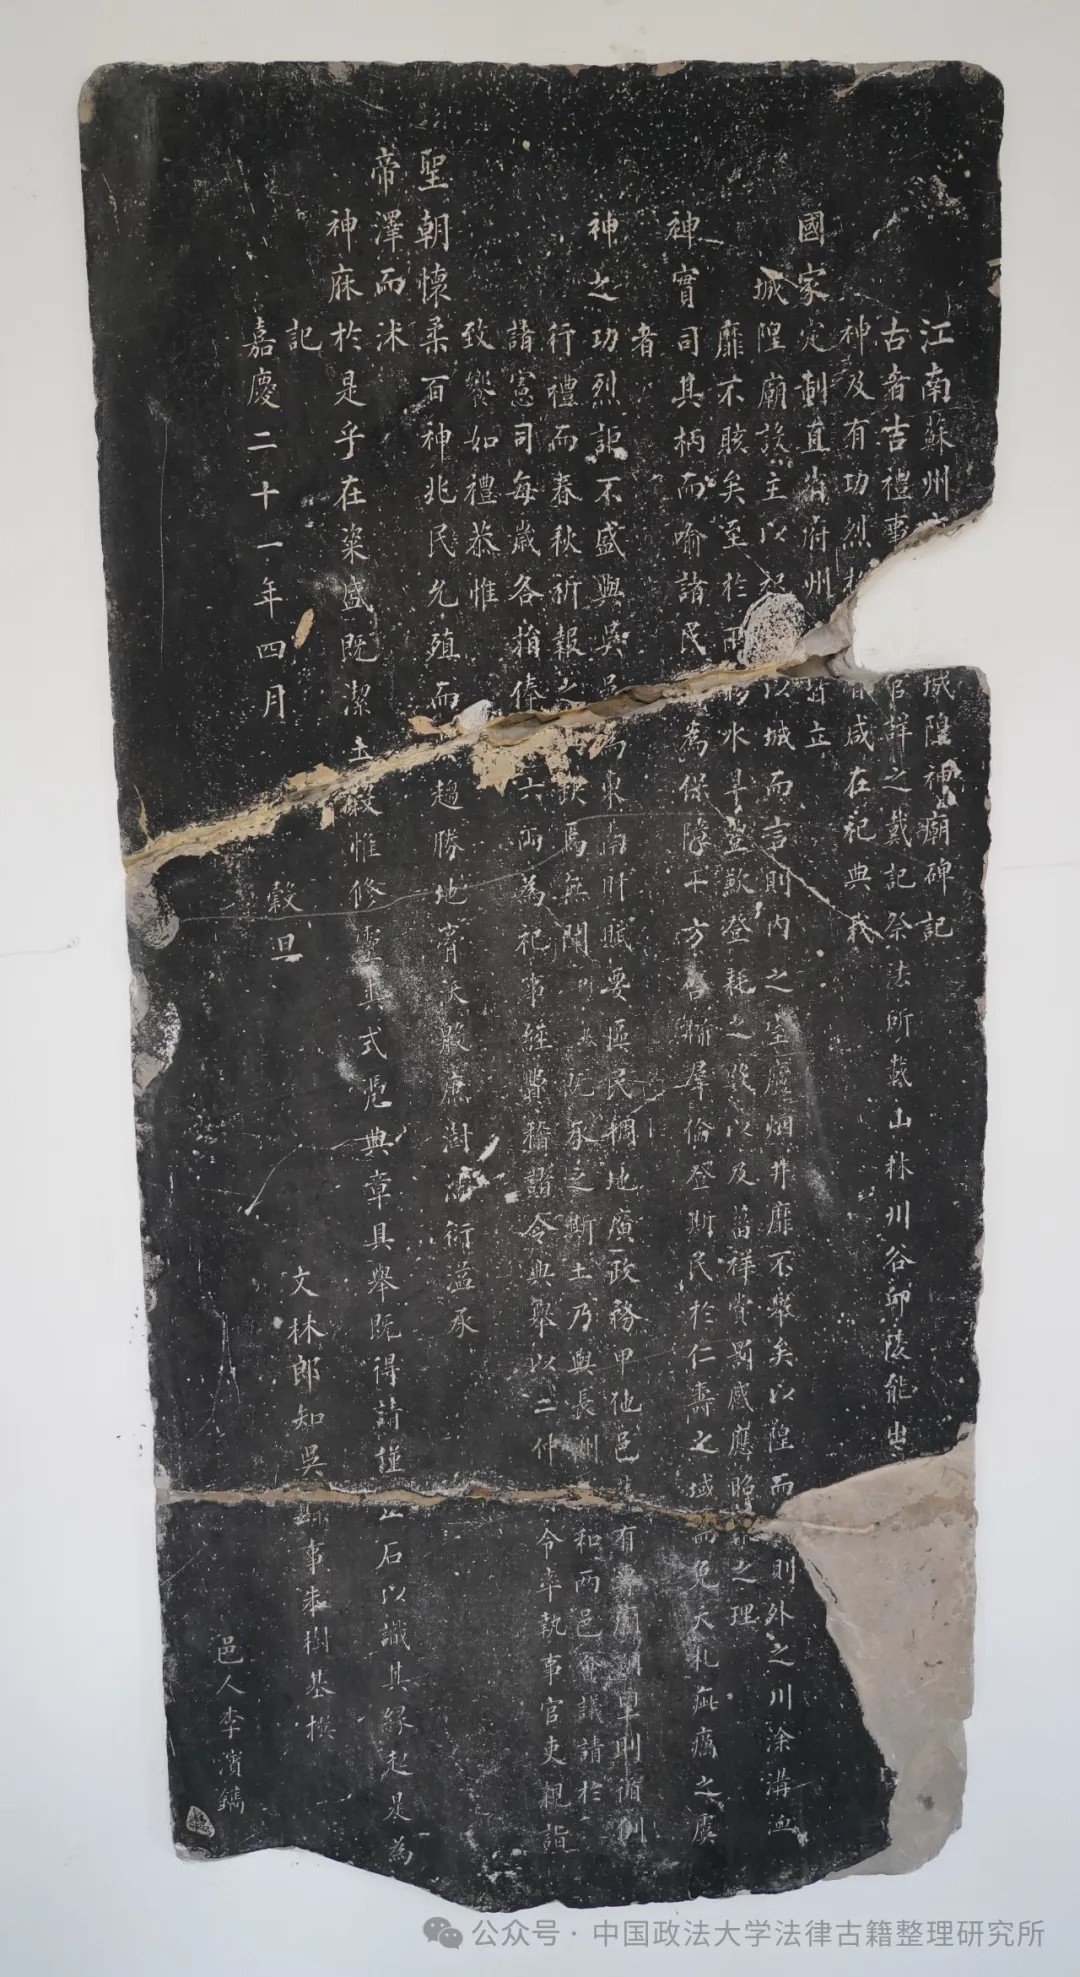 江南蘇州城隍神廟碑記
古者吉禮事官詳之戴記祭法所載山林川谷邱陵能出
神及有功烈咸在祀典我
國家定制直省府州皆立
城隍廟設主以祀以城而言則內之室廬烟井靡不舉矣以隍而則外之川涂溝洫
靡不賅矣至於雨水旱豐歉登耗之數以及菑祥賞罰感應昭之理
神實司其柄而喻諸民為保障千方群倫登斯民於仁壽之域而免夭札疵癘之虞
者
神之功烈詎不盛與吳邑為東南財賦要區民稠地廣政務甲他邑有廟則循例
行禮而春秋祈報之缺焉無聞之斯土乃與長洲和兩邑會議請於
諸憲司每歲各捐俸六兩為祀事經費稽諸令典聚以二仲令率執事官吏親詣
致饗如禮恭惟
聖朝懷柔百神兆民允殖而趙勝地殷庶澍濡衍溢承
帝澤而沐
神庥於是乎在粢盛既潔惟修其式憑典章具舉既得請謹石以識其緣起是為
記
文林郎知吳縣事朱樹基撰
嘉慶二十一年四月穀旦
邑人李濱鐫
公众号·中国政法大学法律古籍整理研究所